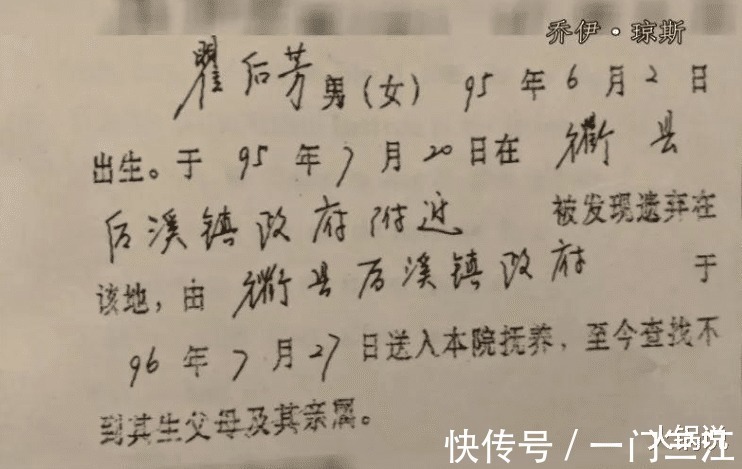 乔伊·琼斯
瞿后芳男(女) 95 年 6 月 2 日
出生。于 95 年 7 月 20 日在 衢县
后溪镇政府附近 被发现遗弃在
该地,由 衢县后溪镇政府 于
96 年 7 月 27 日送入本院抚养,至今查找不
到其生父母及其亲属。
火锅说
快传号 / 一门三江